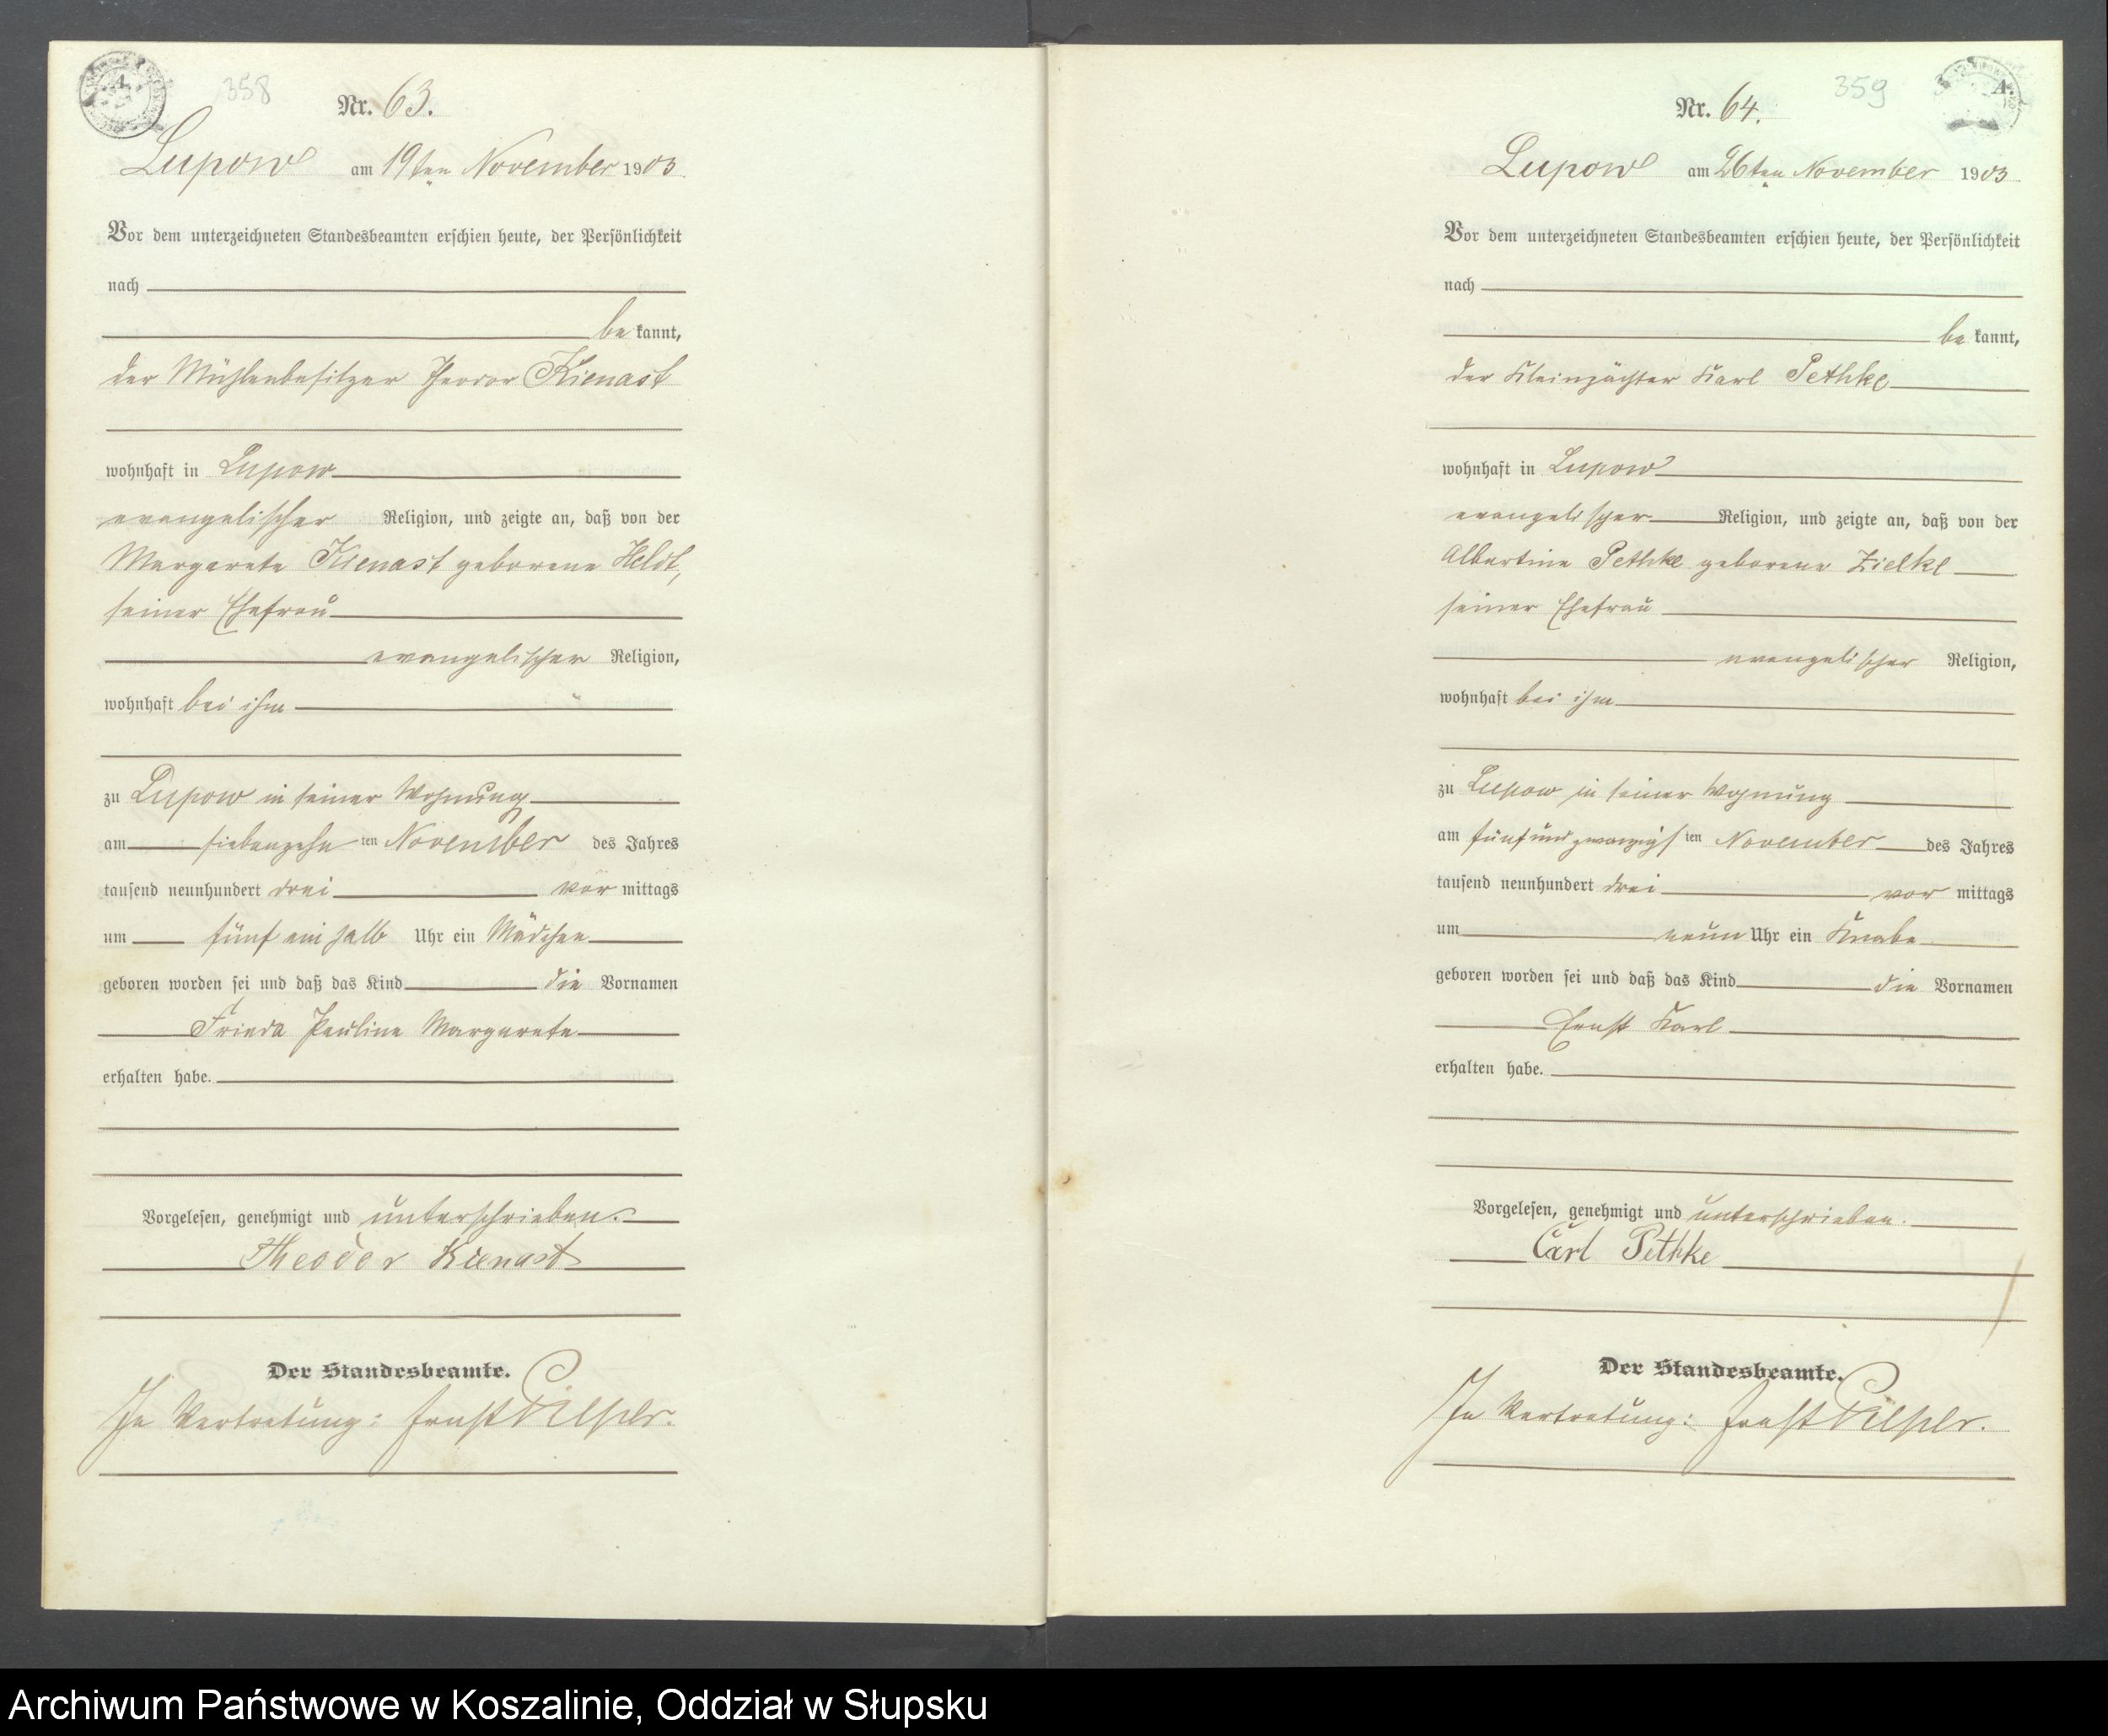 358
Nr. 63.
Lupow am 19ten November 1903.
Vor dem unterzeichneten Standesbeamten erschien heute, der Persönlichkeit
nach
be kannt,
der Mühlenbesitzer Theodor Kienast
wohnhaft in Lupow
evangelischer Religion, und zeigte an, daß von der
Margarete Kienast geborene Heldt,
seiner Ehefrau
evangelischer Religion,
wohnhaft bei ihm
zu Lupow in seiner Wohnung
am siebenzehn ten November des Jahres
tausend neunhundert drei vor mittags
um fünf ein halb Uhr ein Mädchen
geboren worden sei und daß das Kind die Vornamen
Frieda Pauline Margarete
erhalten habe.
Vorgelesen, genehmigt und unterschrieben.
Theodor Kienast
Der Standesbeamte.
In Vertretung: Ernst
359
Nr. 64.
Lupow am 26ten November 1903
Vor dem unterzeichneten Standesbeamten erschien heute, der Persönlichkeit
nach
be kannt,
der Kleinpächter Karl Pethke
wohnhaft in Lupow
evangelischer Religion, und zeigte an, daß von der
Albertine Pethke geborene Zielke
seiner Ehefrau
evangelischer Religion,
wohnhaft bei ihm
zu Lupow in seiner Wohnung
am fünfundzwanzigs ten November des Jahres
tausend neunhundert drei vor mittags
um neun Uhr ein Knabe
geboren worden sei und daß das Kind die Vornamen
Ernst Karl
erhalten habe.
Vorgelesen, genehmigt und unterschrieben.
Carl Pethke
Der Standesbeamte.
In Vertretung: Ernst
Archiwum Państwowe w Koszalinie, Oddział w Słupsku